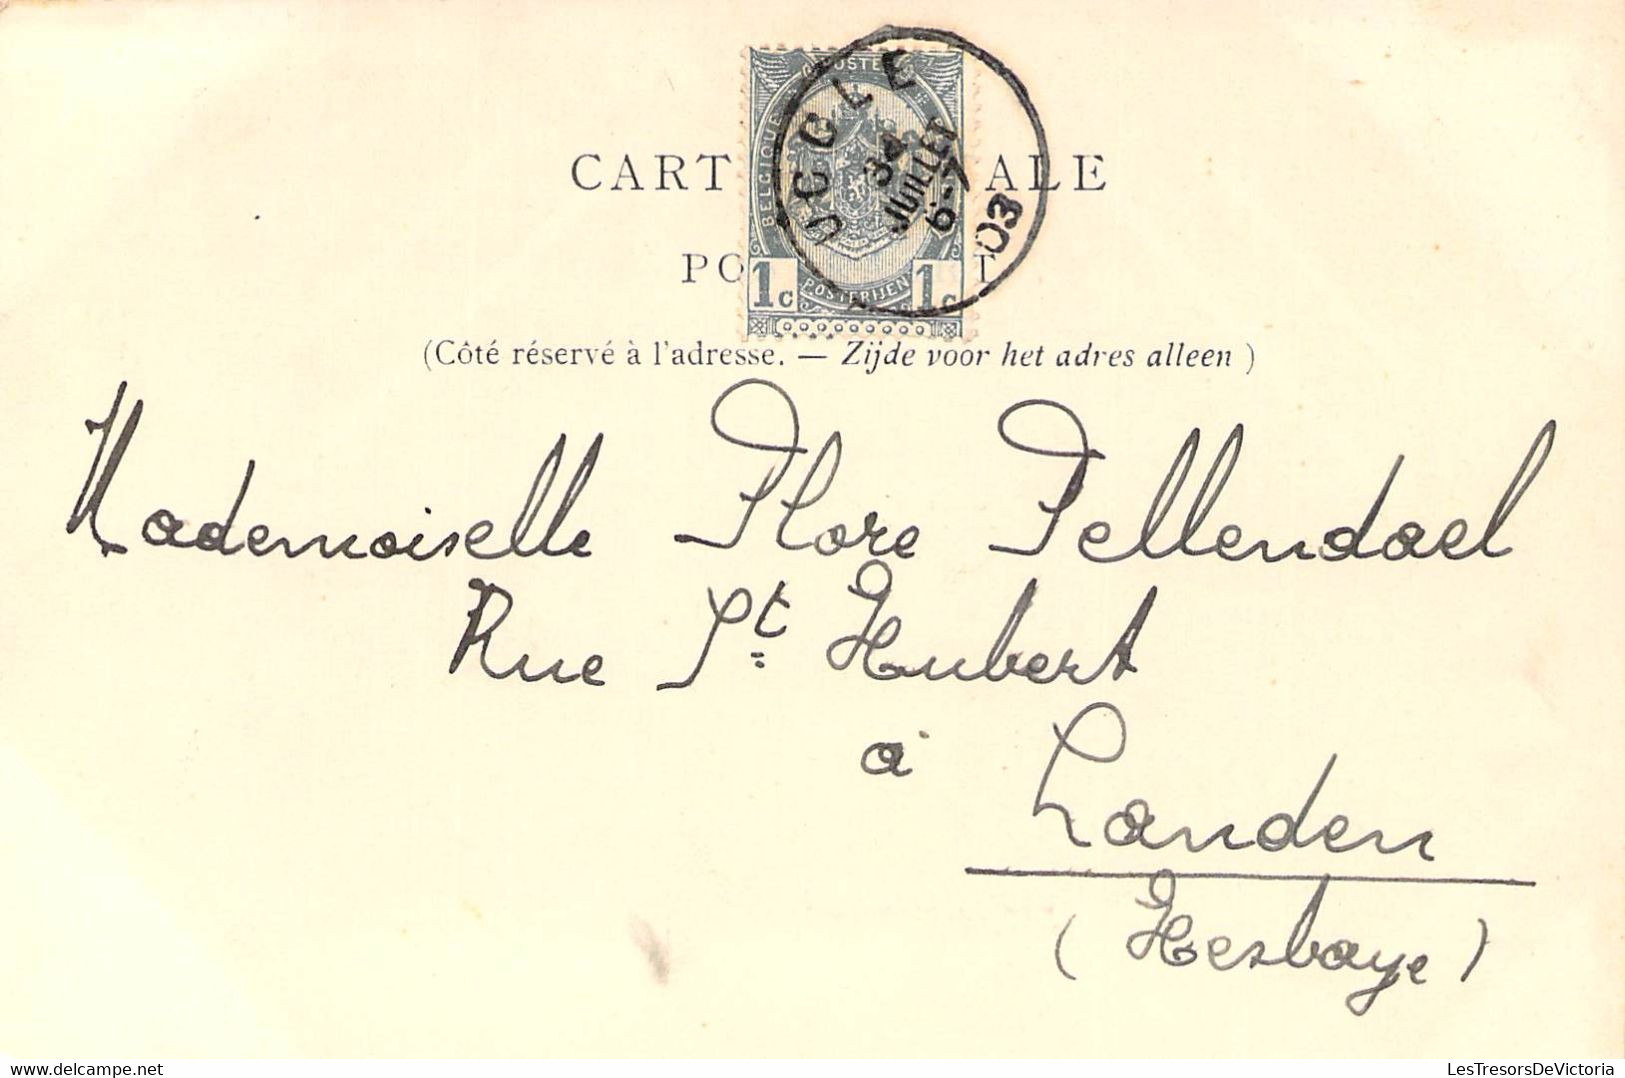 POSTES
BELGIQUE
1c POSTERIJEN 1c
UCCLE
JUILLET
6-7
03
CART ALE
PO T
(Côté réservé à l'adresse. — Zijde voor het adres alleen)
Mademoiselle Flore Fellendael
Rue St Hubert
à
Landen
(Hesbaye)
LesTresorsDeVictoria